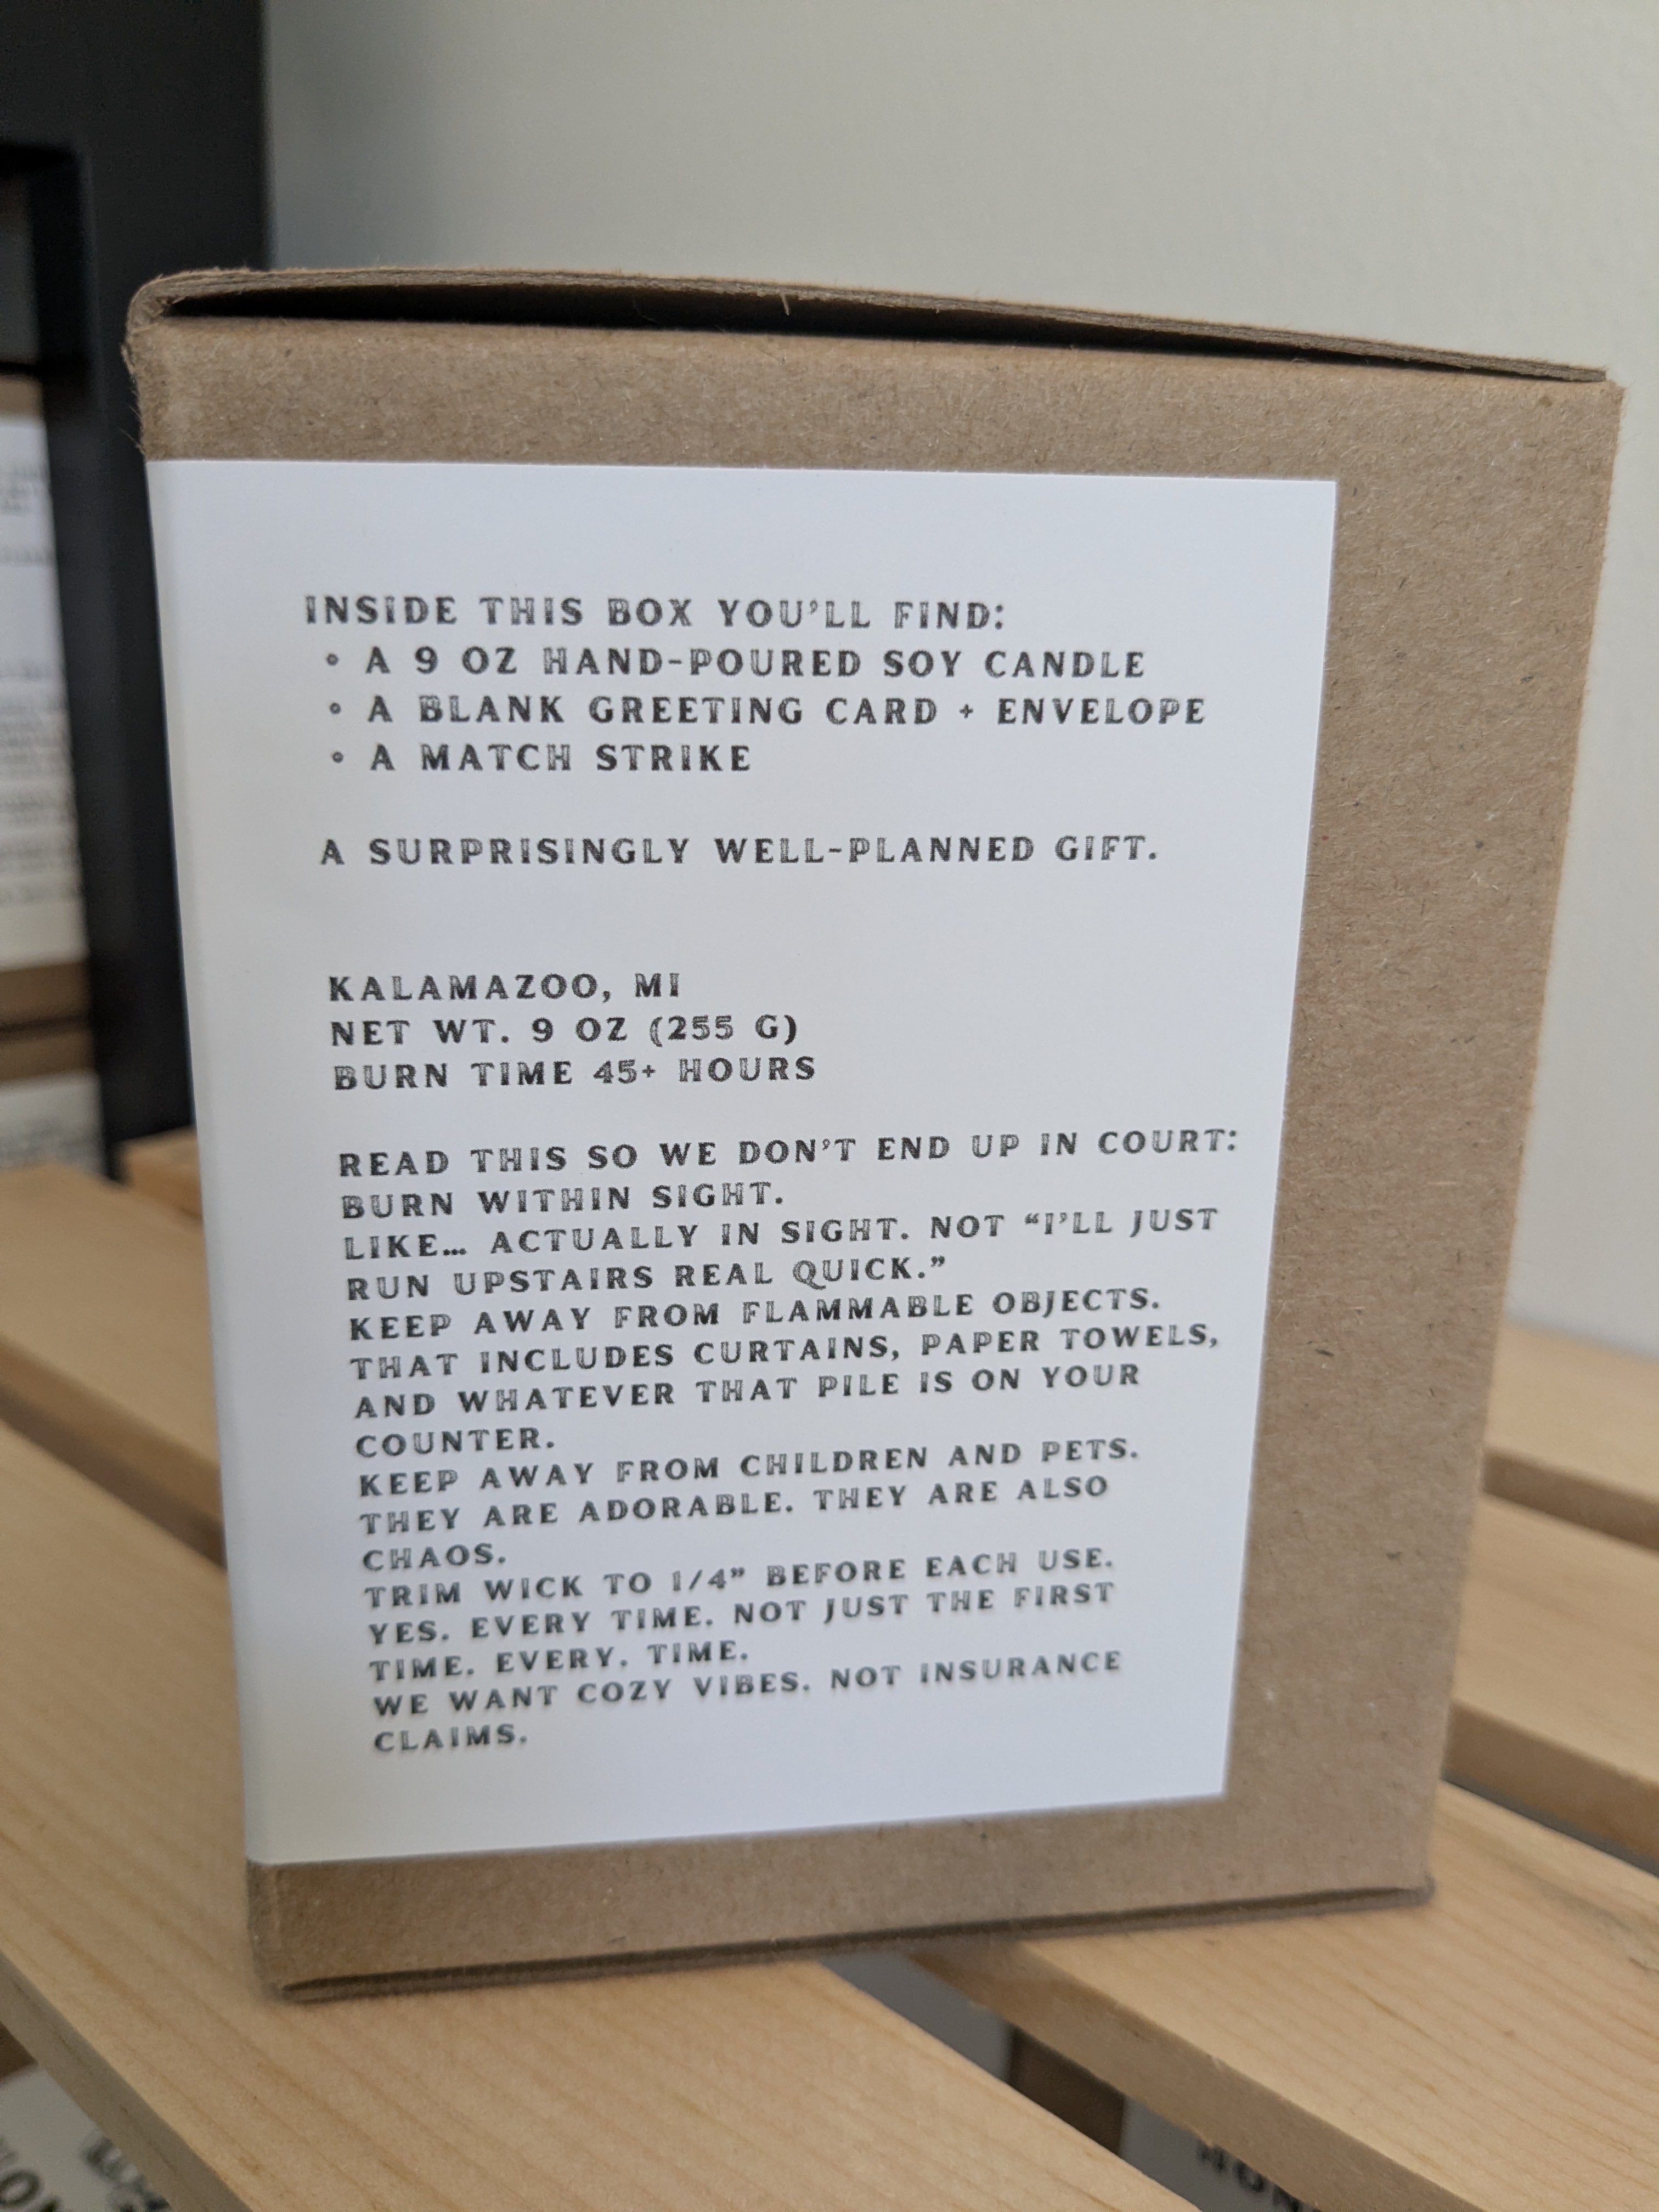 INSIDE THIS BOX YOU'LL FIND:
• A 9 OZ HAND-POURED SOY CANDLE
• A BLANK GREETING CARD + ENVELOPE
• A MATCH STRIKE
A SURPRISINGLY WELL-PLANNED GIFT.
KALAMAZOO, MI
NET WT. 9 OZ (255 G)
BURN TIME 45+ HOURS
READ THIS SO WE DON'T END UP IN COURT:
BURN WITHIN SIGHT.
LIKE... ACTUALLY IN SIGHT. NOT “I'LL JUST
RUN UPSTAIRS REAL QUICK.”
KEEP AWAY FROM FLAMMABLE OBJECTS.
THAT INCLUDES CURTAINS, PAPER TOWELS,
AND WHATEVER THAT PILE IS ON YOUR
COUNTER.
KEEP AWAY FROM CHILDREN AND PETS.
THEY ARE ADORABLE. THEY ARE ALSO
CHAOS.
TRIM WICK TO 1/4” BEFORE EACH USE.
YES. EVERY TIME. NOT JUST THE FIRST
TIME. EVERY. TIME.
WE WANT COZY VIBES. NOT INSURANCE
CLAIMS.